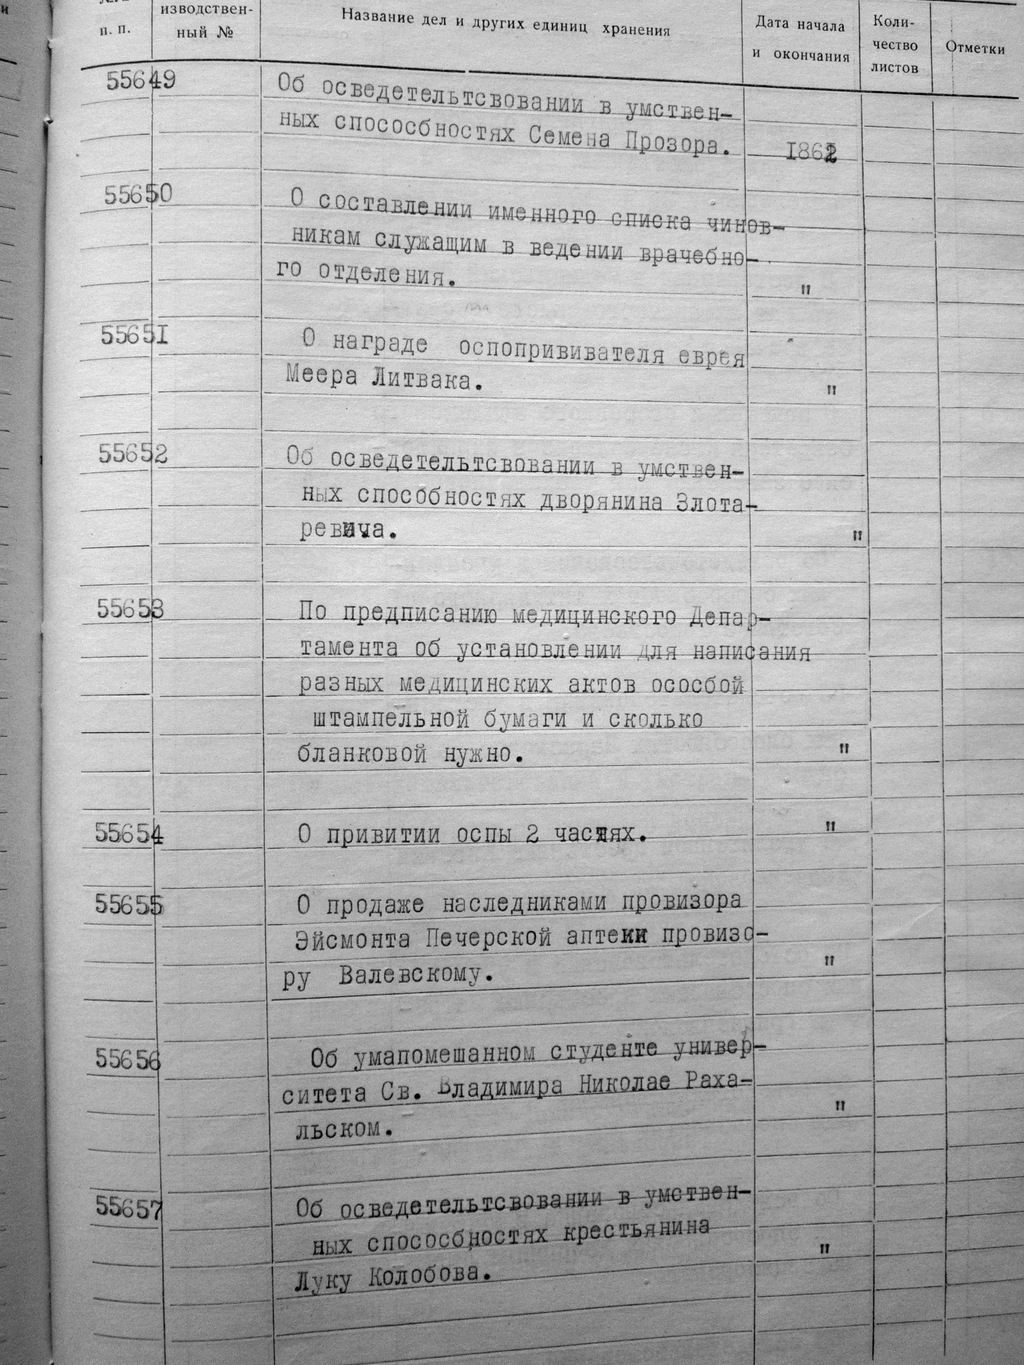 п. п.
изводствен-
ный №
Название дел и других единиц хранения
Дата начала
и окончания
Коли-
чество
листов
Отметки
55649
Об осведетельтсвовании в умствен-
ных спососбностях Семена Прозора.
1862
55650
О составлении именного списка чинов-
никам служащим в ведении врачебно-
го отделения.
"
55651
О награде оспопрививателя еврея
Меера Литвака.
"
55652
Об осведетельтсвовании в умствен-
ных способностях дворянина Злота-
ревича.
"
55653
По предписанию медицинского Депар-
тамента об установлении для написания
разных медицинских актов осособой
штампельной бумаги и сколько
бланковой нужно.
"
55654
О привитии оспы 2 частях.
"
55655
О продаже наследниками провизора
Эйсмонта Печерской аптеки провизо-
ру Валевскому.
"
55656
Об умапомешанном студенте универ-
ситета Св. Владимира Николае Раха-
льском.
"
55657
Об осведетельтсвовании в умствен-
ных спососбностях крестьянина
Луку Колобова.
"